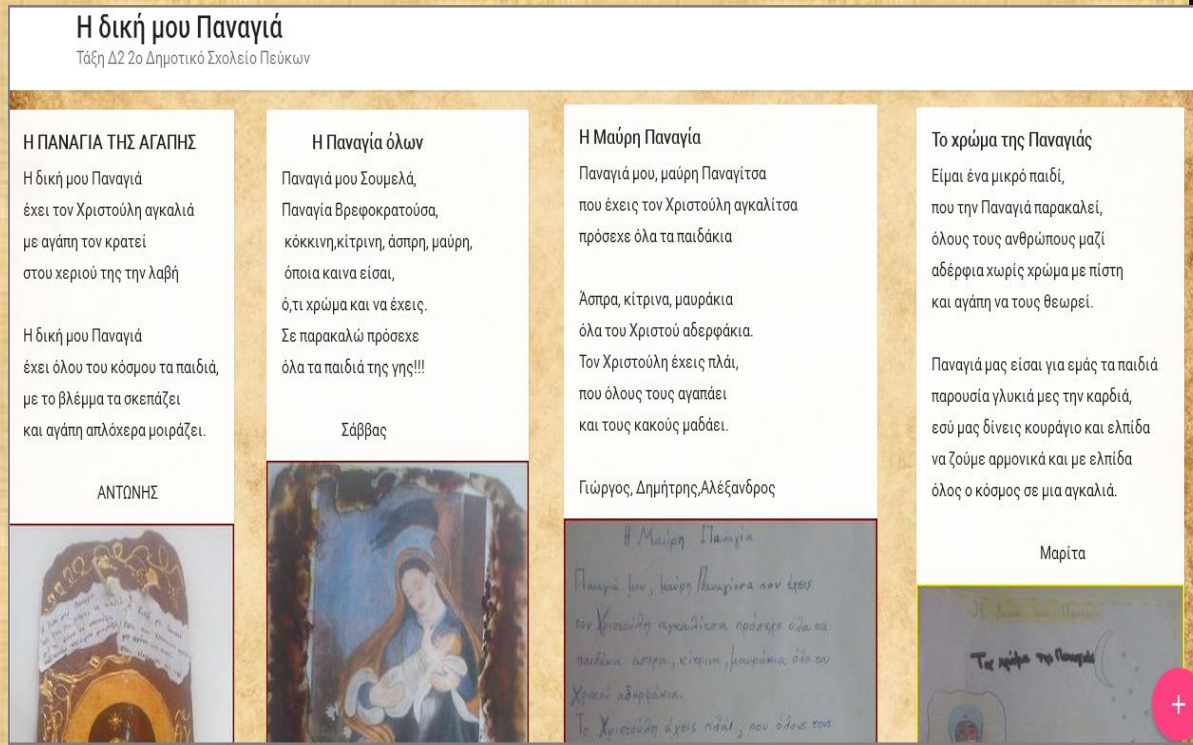 Η δική μου Παναγιά
Τάξη Δ2 2ο Δημοτικό Σχολείο Πεύκων
Η ΠΑΝΑΓΙΑ ΤΗΣ ΑΓΑΠΗΣ
Η δική μου Παναγιά
έχει τον Χριστούλη αγκαλιά
με αγάπη τον κρατεί
στου χεριού της την λαβή
Η δική μου Παναγιά
έχει όλου του κόσμου τα παιδιά,
με το βλέμμα τα σκεπάζει
και αγάπη απλόχερα μοιράζει.
ΑΝΤΩΝΗΣ
Η Παναγία όλων
Παναγιά μου Σουμελά,
Παναγία Βρεφοκρατούσα,
κόκκινη,κίτρινη, άσπρη, μαύρη,
όποια καινα είσαι,
ό,τι χρώμα και να έχεις.
Σε παρακαλώ πρόσεχε
όλα τα παιδιά της γης!!!
Σάββας
Η Μαύρη Παναγία
Παναγιά μου, μαύρη Παναγίτσα
που έχεις τον Χριστούλη αγκαλίτσα
πρόσεχε όλα τα παιδάκια
Άσπρα, κίτρινα, μαυράκια
όλα του Χριστού αδερφάκια.
Τον Χριστούλη έχεις πλάι,
που όλους τους αγαπάει
και τους κακούς μαδάει.
Γιώργος, Δημήτρης,Αλέξανδρος
Η Μαύρη Παναγία
Παναγιά μου, μαύρη Παναγίτσα που έχεις
τον Χριστούλη αγκαλίτσα πρόσεχε όλα τα
παιδάκια άσπρα, κίτρινα, μαυράκια όλα του
Χριστού αδερφάκια.
Το Χριστούλη έχεις πλάι, που όλους τους
Το χρώμα της Παναγιάς
Είμαι ένα μικρό παιδί,
που την Παναγιά παρακαλεί,
όλους τους ανθρώπους μαζί
αδέρφια χωρίς χρώμα με πίστη
και αγάπη να τους θεωρεί.
Παναγιά μας είσαι για εμάς τα παιδιά
παρουσία γλυκιά μες την καρδιά,
εσύ μας δίνεις κουράγιο και ελπίδα
να ζούμε αρμονικά και με ελπίδα
όλος ο κόσμος σε μια αγκαλιά.
Μαρίτα
Το χρώμα της Παναγιάς